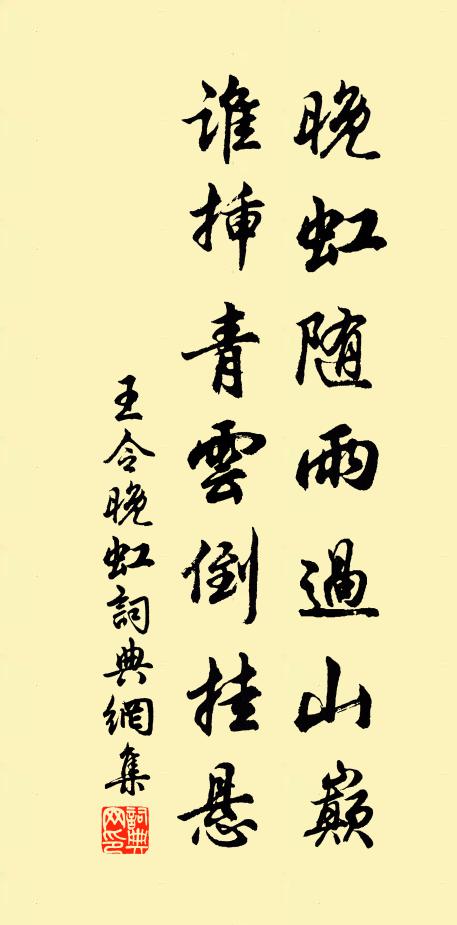 晚虹随雨過山巔
誰插青雲倒挂悬
王令晚虹詞典網集
詞典网印